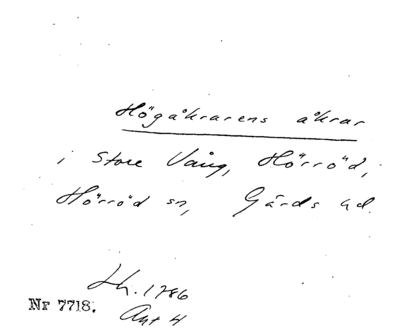 Högåkrarens åkrar
i Store Vång, Hörröd,
Hörröd sn, Gärds hd.
Lh. 1786
Nr 7718.
Akt 4